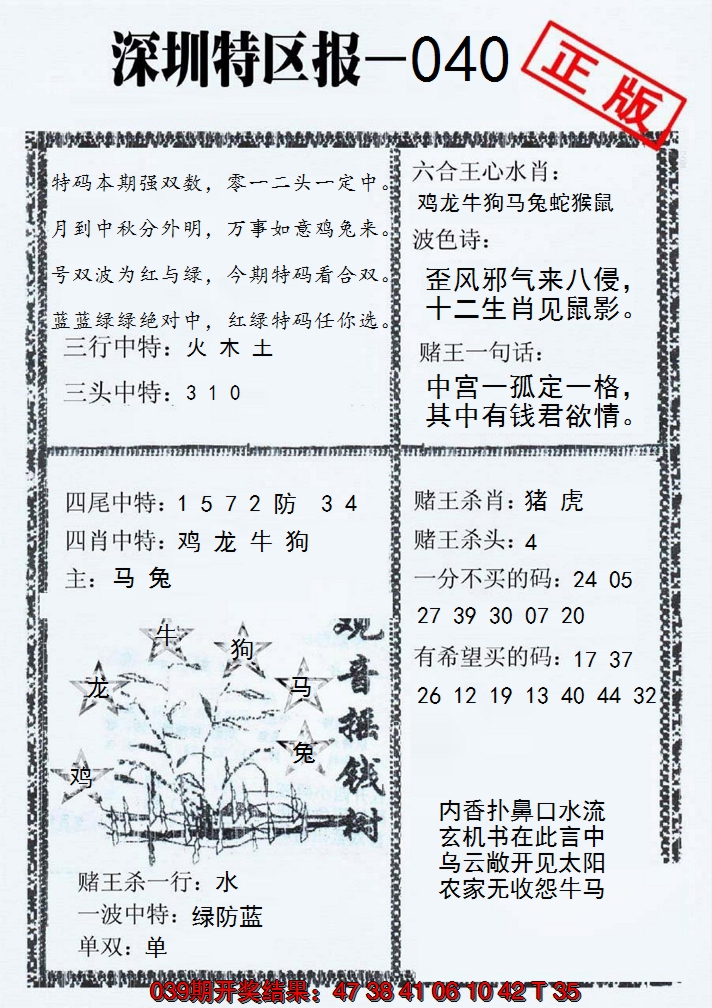 深圳特区报—040
正版
特码本期强双数，零一二头一定中。
月到中秋分外明，万事如意鸡兔来。
号双波为红与绿，今期特码看合双。
蓝蓝绿绿绝对中，红绿特码任你选。
三行中特：火 木 土
三头中特：3 1 0
六合王心水肖：
鸡龙牛狗马兔蛇猴鼠
波色诗：
歪风邪气来八侵，
十二生肖见鼠影。
赌王一句话：
中宫一孤定一格，
其中有钱君欲情。
四尾中特：1 5 7 2 防 3 4
四肖中特：鸡 龙 牛 狗
主：马 兔
牛
狗
龙
马
兔
鸡
观音摇钱树
赌王杀一行：水
一波中特：绿防蓝
单双：单
赌王杀肖：猪 虎
赌王杀头：4
一分不买的码：24 05
27 39 30 07 20
有希望买的码：17 37
26 12 19 13 40 44 32
内香扑鼻口水流
玄机书在此言中
乌云敞开见太阳
农家无收怨牛马
039期开奖结果：47 38 41 06 10 42 T 35